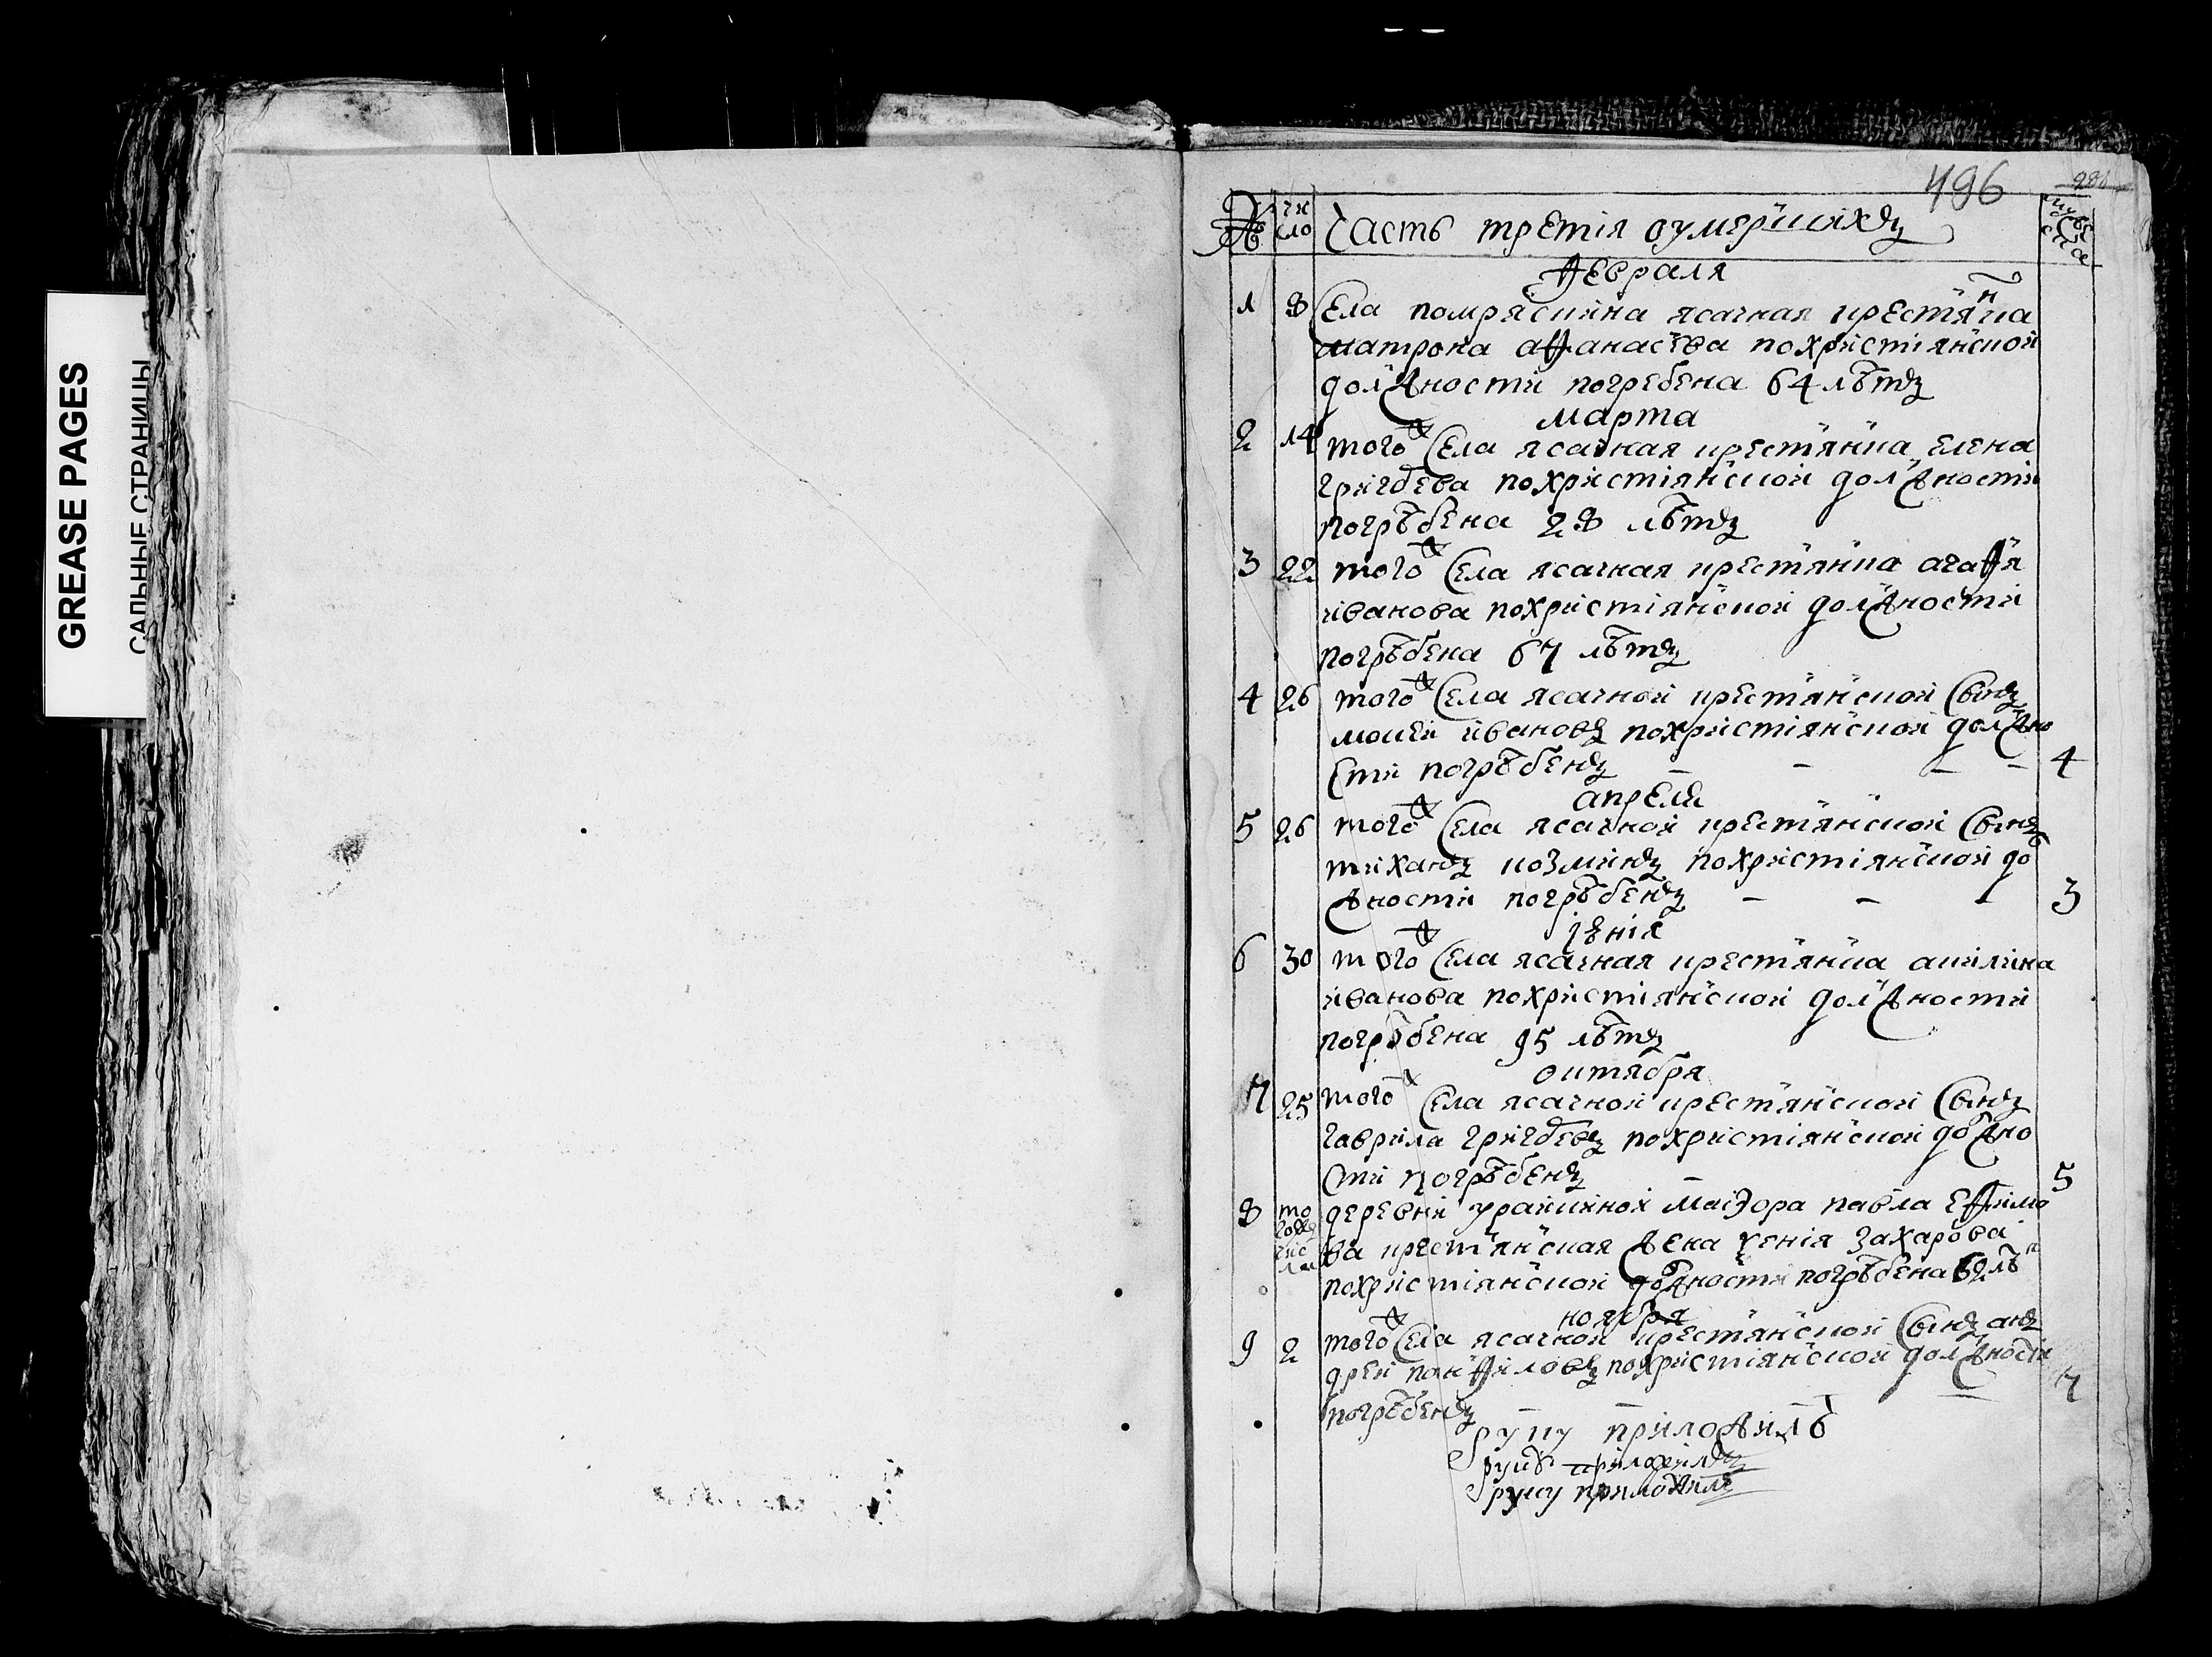 GREASE PAGES
САЛЬНЫЕ СТРАНИЦЫ
496
№ число Часть третія оумершихъ
февраля
1 8 Села помряскина ясачная крестьянка
матрона афанасева похристианской
должности погребена 64 лѣтъ
марта
2 14 того ж села ясачная крестьянка елена
григорева похристіянской должности
погрѣбена 28 лѣтъ
3 22 того ж села ясачная крестьянка агафя
иванова похристіянской должности
погрѣбена 67 лѣтъ
4 26 того ж села ясачной крестьянской сынъ
моисеи ивановъ похристіянской должно
сти погрѣбенъ 4
апреля
5 26 того ж села ясачной крестьянской сынъ
тиханъ козминъ похристіянской дол
жности погрѣбенъ 3
іюнія
6 30 того ж села ясачная крестьянка акилина
иванова похристіянской должности
погрѣбена 95 лѣтъ
октября
7 25 того ж села ясачной крестьянской сынъ
гаврила григоревъ похристіянской должно
сти погрѣбенъ 5
8 того ж числа деревни ураикиной маиора павла ефимо
ва крестьянская жена ксенія захарова
похристіянской должности погрѣбена 62 лѣт
ноября
9 2 того ж села ясачной крестьянской сынъ анъ
дреи панфиловъ похристіянской должности 7
погрѣбенъ
руку приложилъ
руку приложилъ
руку приложилъ